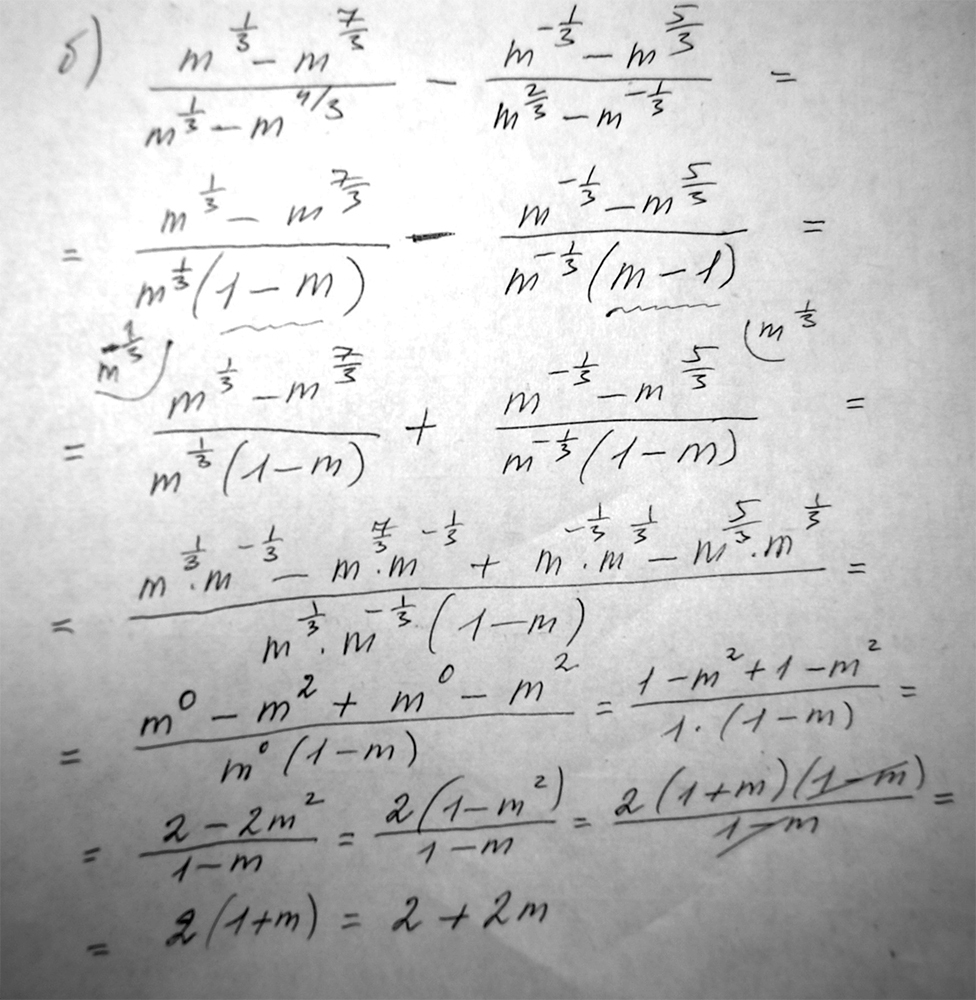 б) (m^(1/3) - m^(7/3))/(m^(1/3) - m^(4/3)) - (m^(-1/3) - m^(5/3))/(m^(2/3) - m^(-1/3)) =
= (m^(1/3) - m^(7/3))/(m^(1/3)(1 - m)) - (m^(-1/3) - m^(5/3))/(m^(-1/3)(m - 1)) =
= m^(-1/3) (m^(1/3) - m^(7/3))/(m^(1/3)(1 - m)) + (m^(-1/3) - m^(5/3))/(m^(-1/3)(1 - m)) m^(1/3) =
= (m^(1/3) · m^(-1/3) - m^(7/3) · m^(-1/3) + m^(-1/3) · m^(1/3) - m^(5/3) · m^(1/3))/(m^(1/3) · m^(-1/3)(1 - m)) =
= (m^0 - m^2 + m^0 - m^2)/(m^0(1 - m)) = (1 - m^2 + 1 - m^2)/(1 · (1 - m)) =
= (2 - 2m^2)/(1 - m) = (2(1 - m^2))/(1 - m) = (2(1 + m)(1 - m))/(1 - m) =
= 2(1 + m) = 2 + 2m